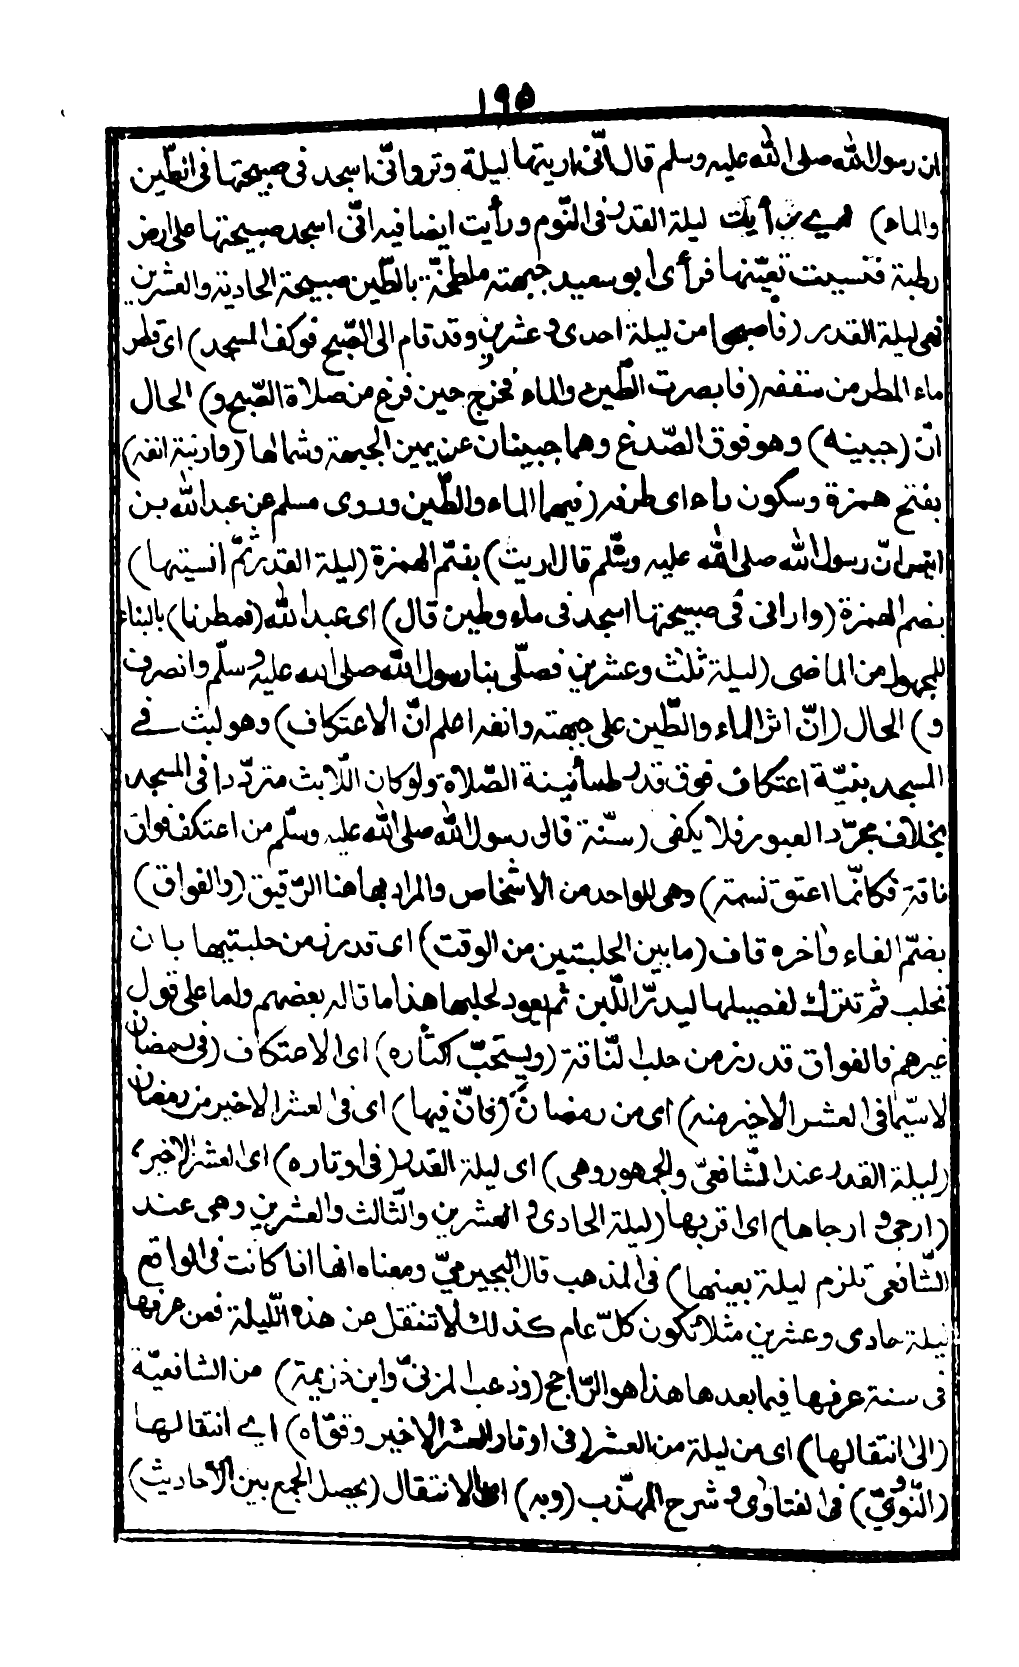 ١٩٥
ان رسول الله صلى الله عليه وسلم قال انّى اريتها ليلة وتر وانّى اسجد فى صبيحتها فى الطّين
والماء) اى رأيت ليلة القدر فى النّوم ورأيت ايضا فيه انّى اسجد صبيحتها على ارض
رطبة فنسيت تعيّنها فرأى ابو سعيد جبهته ملطخة بالطّين صبيحة الحادية والعشرين
فهى ليلة القدر (فاصبحوا من ليلة احدى وعشرين وقد قام الى الصّبح فوكف المسجد) اى قطر
ماء المطر من سقفه (فابصرت الطّين والماء فخرج حين فرغ من صلاة الصّبح و) الحال
انّ (جبينه) وهو فوق الصّدغ وهما جبينان عن يمين الجبهة وشمالها (وارنبة انفه)
بفتح همزة وسكون راء اى طرفه (فيهما الماء والطّين وروى مسلم عن عبد الله بن
انيس انّ رسول الله صلى الله عليه وسلّم قال اريت) بضمّ الهمزة (ليلة القدر ثمّ انسيتها)
بضم الهمزة (وارانى فى صبيحتها اسجد فى ماء وطين قال) اى عبد الله (فمطرنا) بالبناء
للمجهول من الماضى (ليلة ثلث وعشرين فصلّى بنا رسول الله صلى الله عليه وسلّم وانصرف
و) الحال (انّ اثر الماء والطّين على جبهته وانفه اعلم انّ الاعتكاف) وهو لبث فے
المسجد بنيّة اعتكاف فوق قدر طمأنينة الصّلاة ولو كان اللّابث متردّدا فى المسجد
بخلاف مجرّد العبور فلا يكفى (سنّة قال رسول الله صلى الله عليه وسلّم من اعتكف فواق
ناقة فكانّما اعتق نسمة) وهى للواحد من الاشخاص والمراد بها هنا الرّقيق (والفواق)
بضمّ الفاء واٰخره قاف (ما بين الحلبتين من الوقت) اى قدر زمن حلبتيها بان
تحلب ثم تترك لفصيلها ليدرّ اللّبن ثم يعود لحلبها هذا ما قاله بعضهم ولما على قول
غيرهم فالفواق قدر زمن حلب النّاقة (ويستحبّ اكثاره) اى الاعتكاف (فى رمضان
لا سيّما فى العشر الاخير منه) اى من رمضان (فانّ فيها) اى فى العشر الاخير من رمضان
(ليلة القدر عند الشّافعىّ والجمهور وهى) اى ليلة القدر (فى اوتاره) اى العشر الاخير
(ارجى وارجاها) اى اقربها (ليلة الحادى والعشرين والثّالث والعشرين وهى عند
الشّافعى تلزم ليلة بعينها) فى المذهب قال البجيرميّ ومعناه انها اذا كانت فى الواقع
ليلة حادى وعشرين مثلا تكون كلّ عام كذلك لا تنتقل عن هذه اللّيلة فمن عرفها
فى سنة عرفها فيما بعدها هذا هو الرّاجح (وذهب المزنىّ وابن خزيمة) من الشافعيّة
(الى انتقالها) اى من ليلة من العشر (فى اوتار العشر الاخير وقوّاه) اے انتقالها
(النّوويّ) فى الفتاوى وشرح المهذّب (وبه) اى بالانتقال (يحصل الجمع بين الاحاديث)